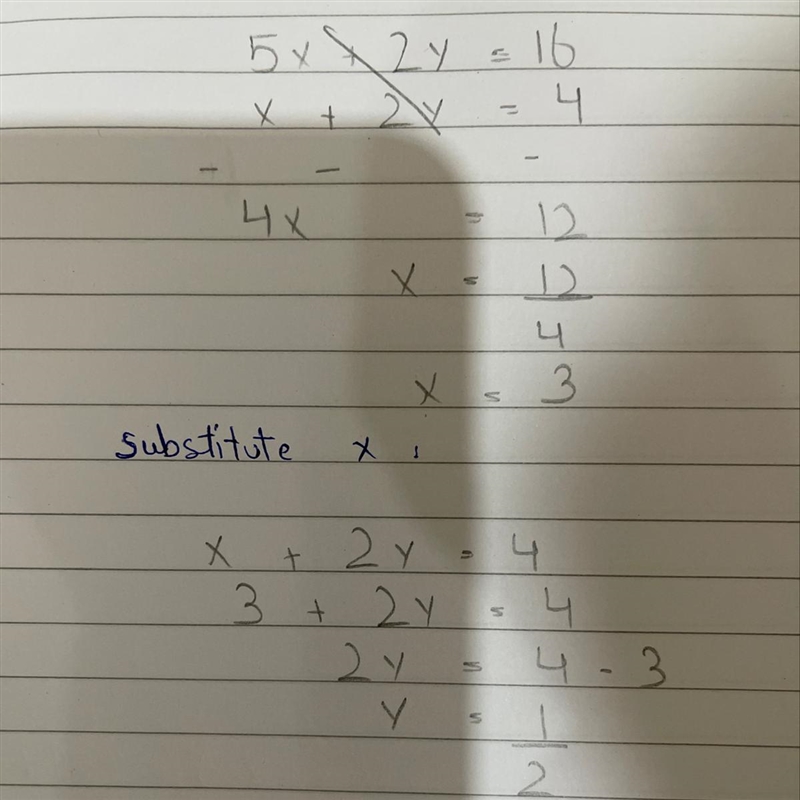 5x + 2y = 16
x + 2y = 4
- - -
4x = 12
x = 12/4
x = 3
substitute x :
x + 2y = 4
3 + 2y = 4
2y = 4 - 3
y = 1/2